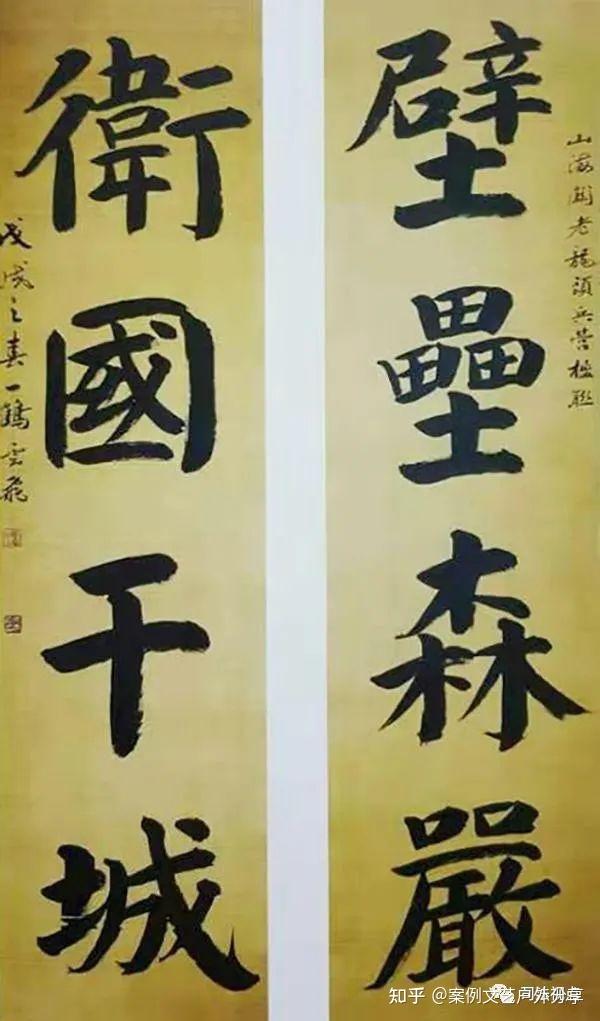 山海關老龍頭兵營楹聯
壁壘森嚴
衛國干城
戊戌之春一鶴雲飛
知乎 @案例文艺户外分享